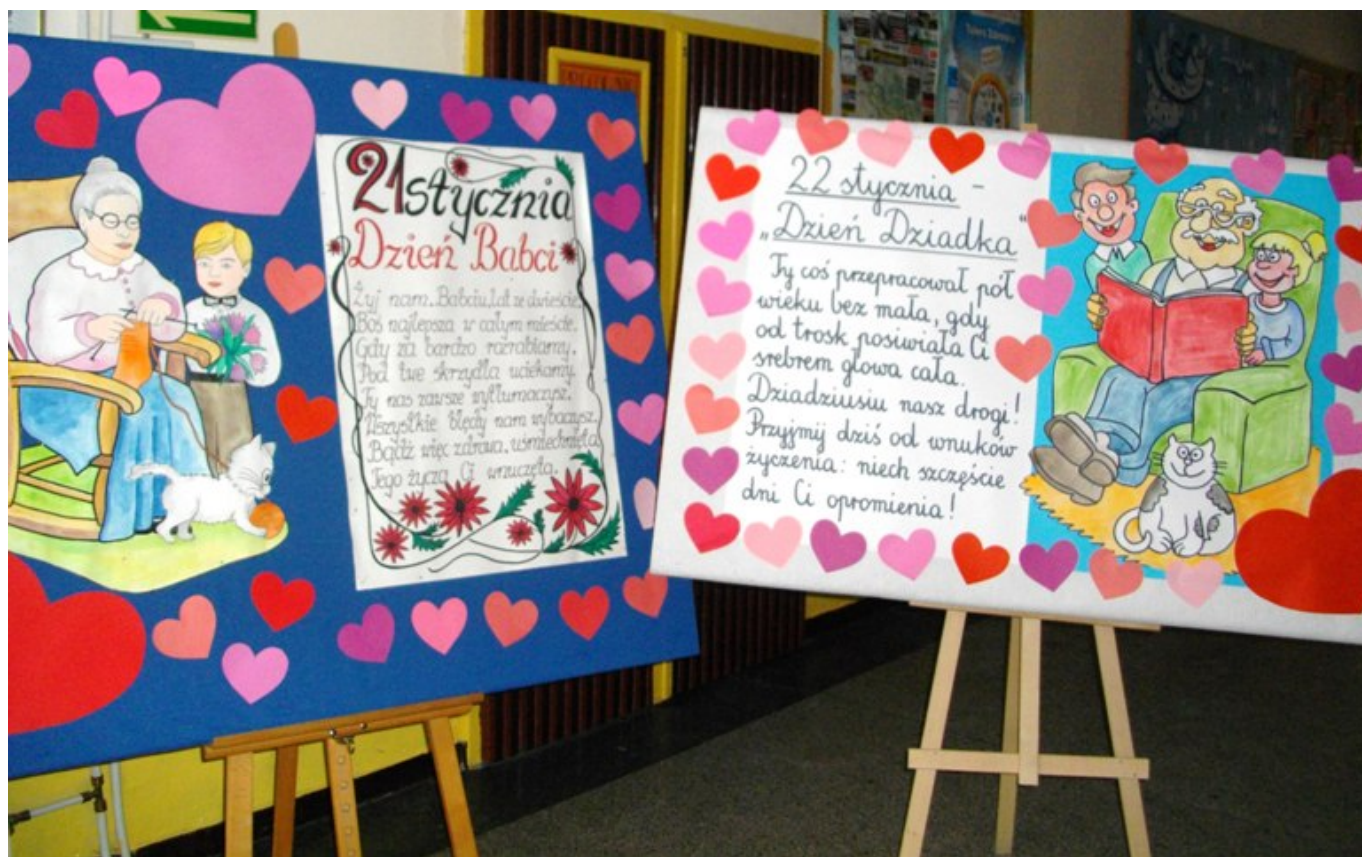 21 stycznia
Dzień Babci
Żyj nam, Babciu, lat ze dwieście,
Boś najlepsza w całym mieście.
Gdy za bardzo rozrabiamy,
Pod twe skrzydła uciekamy.
Ty nas zawsze wytłumaczysz,
Wszystkie błędy nam wybaczysz.
Bądź więc zdrowa, uśmiechnięta
Tego życzą Ci wnuczęta.
22 stycznia -
„Dzień Dziadka"
Ty coś przepracował pół
wieku bez mała, gdy
od trosk posiwiała Ci
srebrem głowa cała.
Dziadziusiu nasz drogi!
Przyjmij dziś od wnuków
życzenia: niech szczęście
dni Ci opromienia!